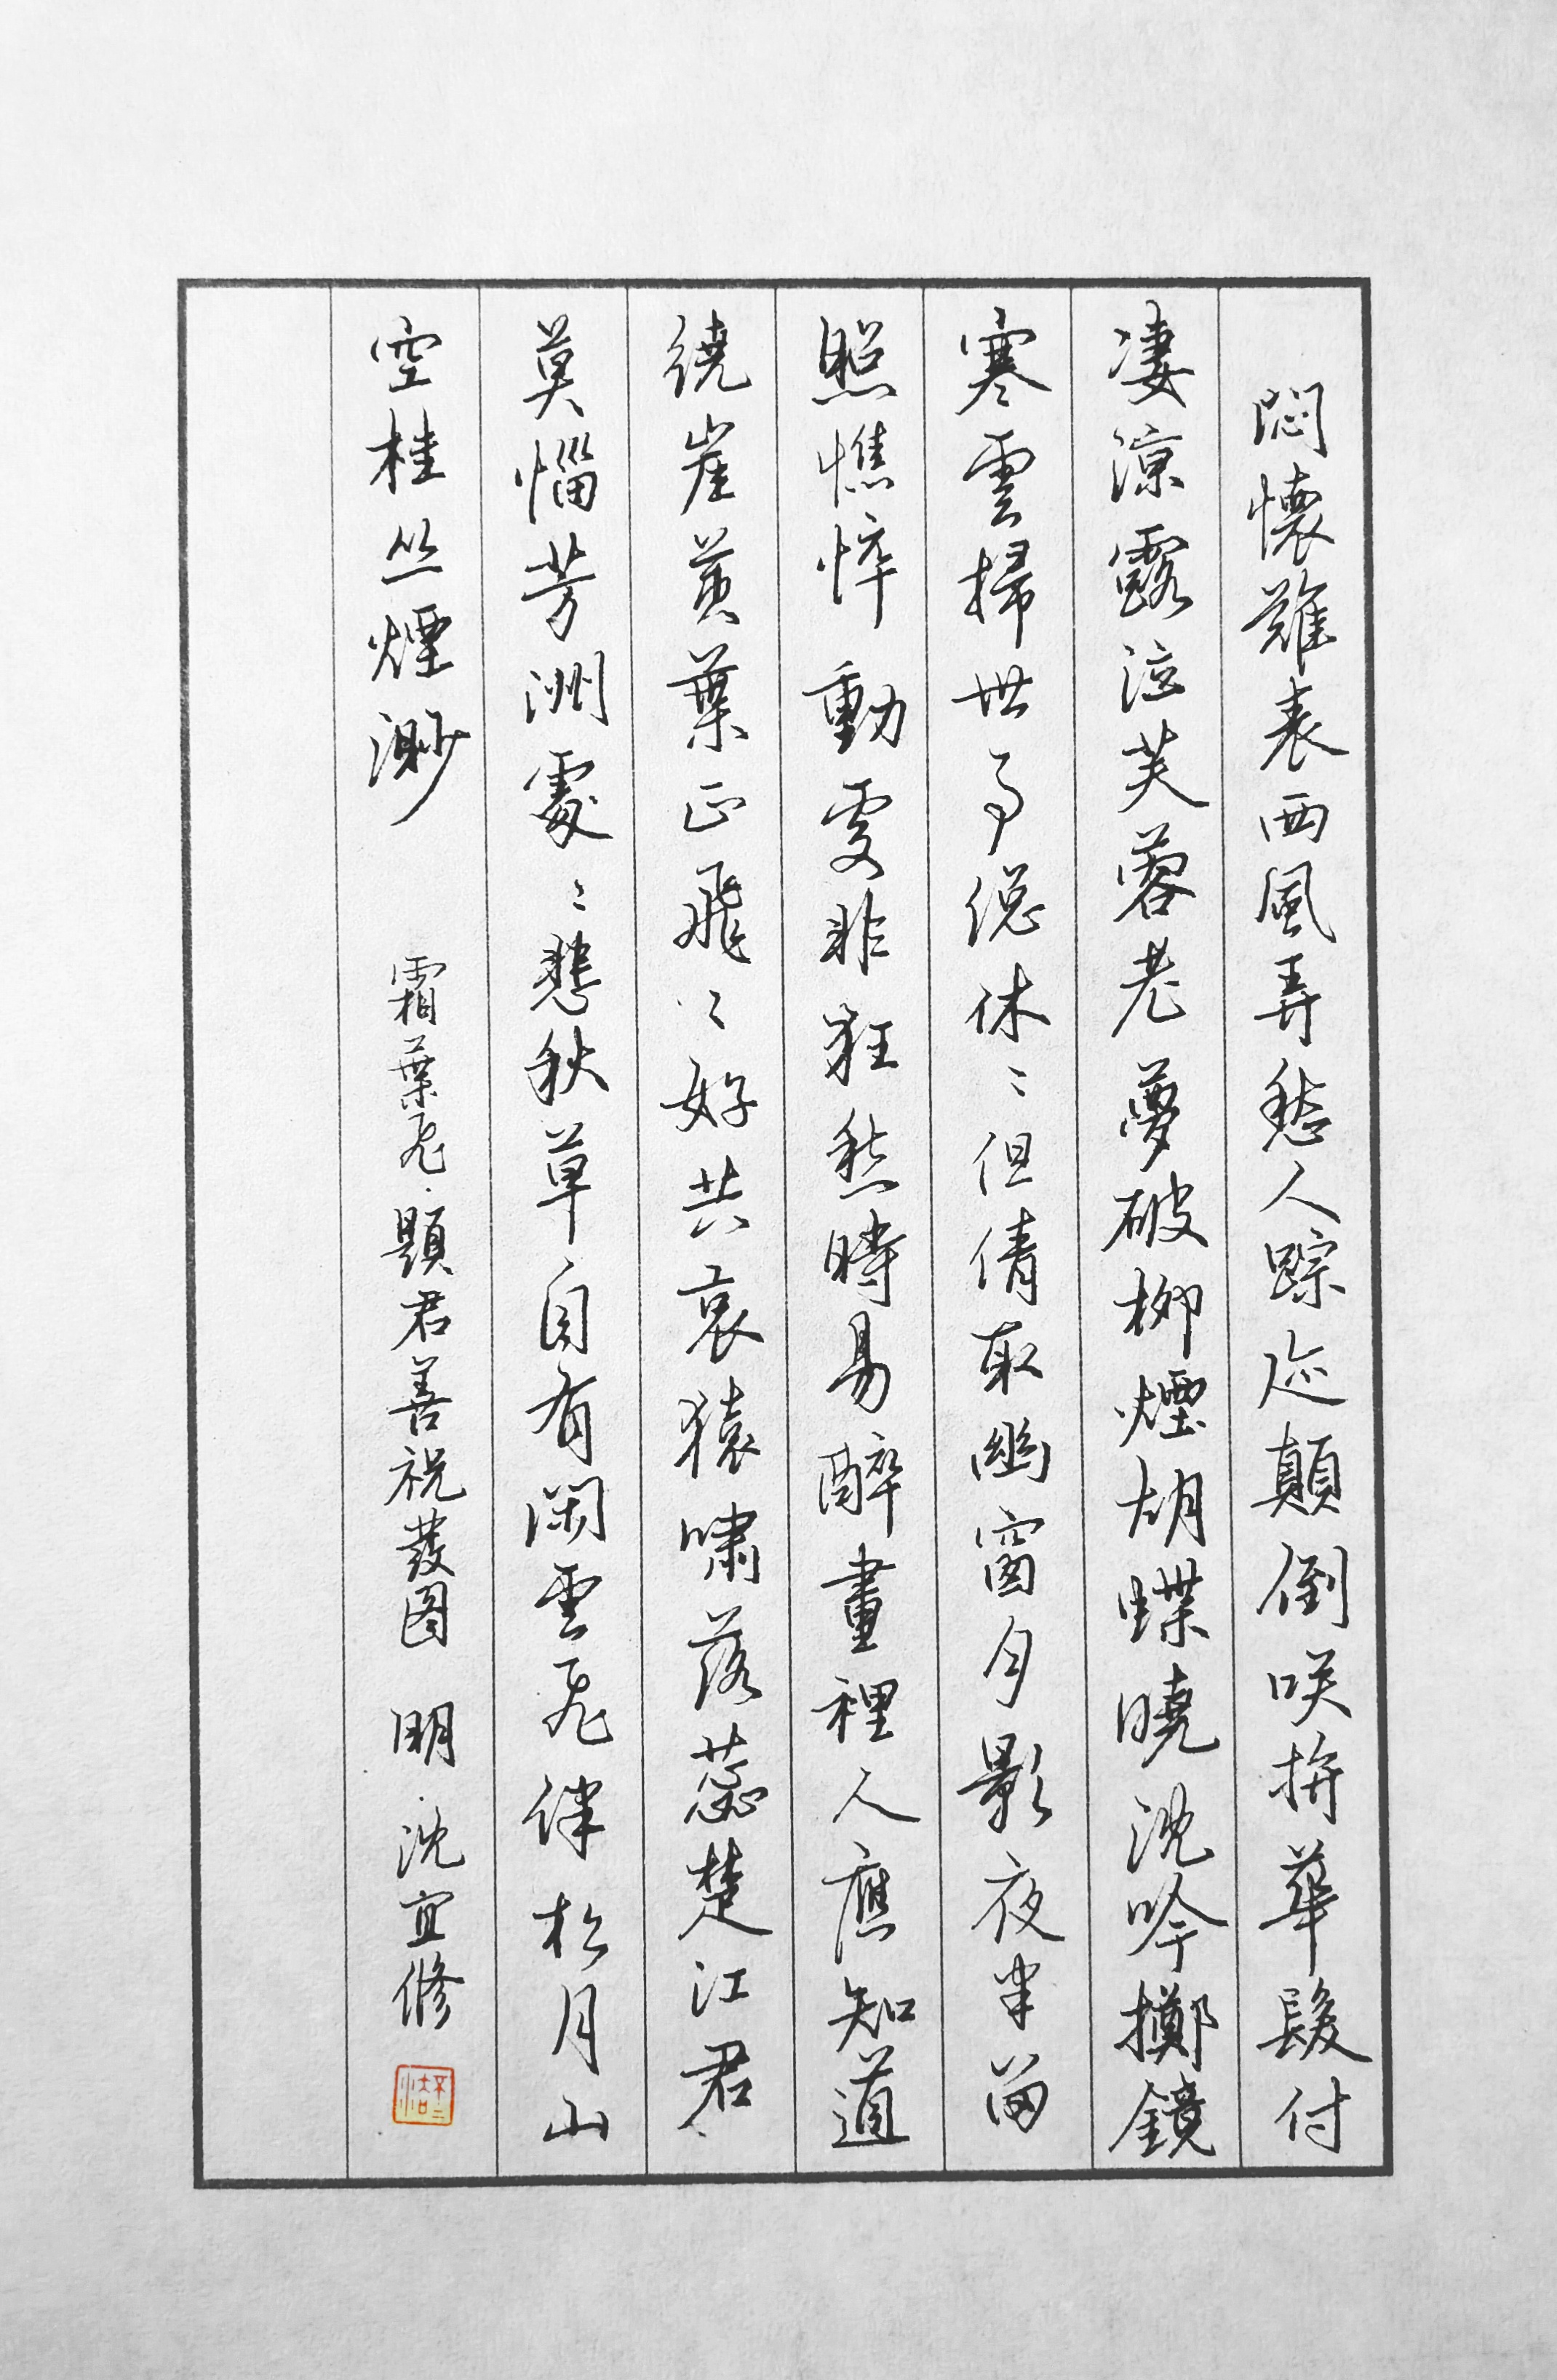 悶懷難表西風弄愁人踪迹顛倒咲拚華髮付
凄涼露泣芙蓉老夢破柳煙胡蝶曉沈吟擲鏡
寒雲掃世事總休〻但倩取幽窗月影夜半留
照憔悴 動處非狂愁時易醉畫裡人應知道
繞崖黃葉正飛〻好共哀猿嘯落蕊楚江君
莫惱芳洲處〻悲秋草自有閑雲飛伴松月山
空桂丛煙渺 霜葉飛·題君善祝髮图 明·沈宜修